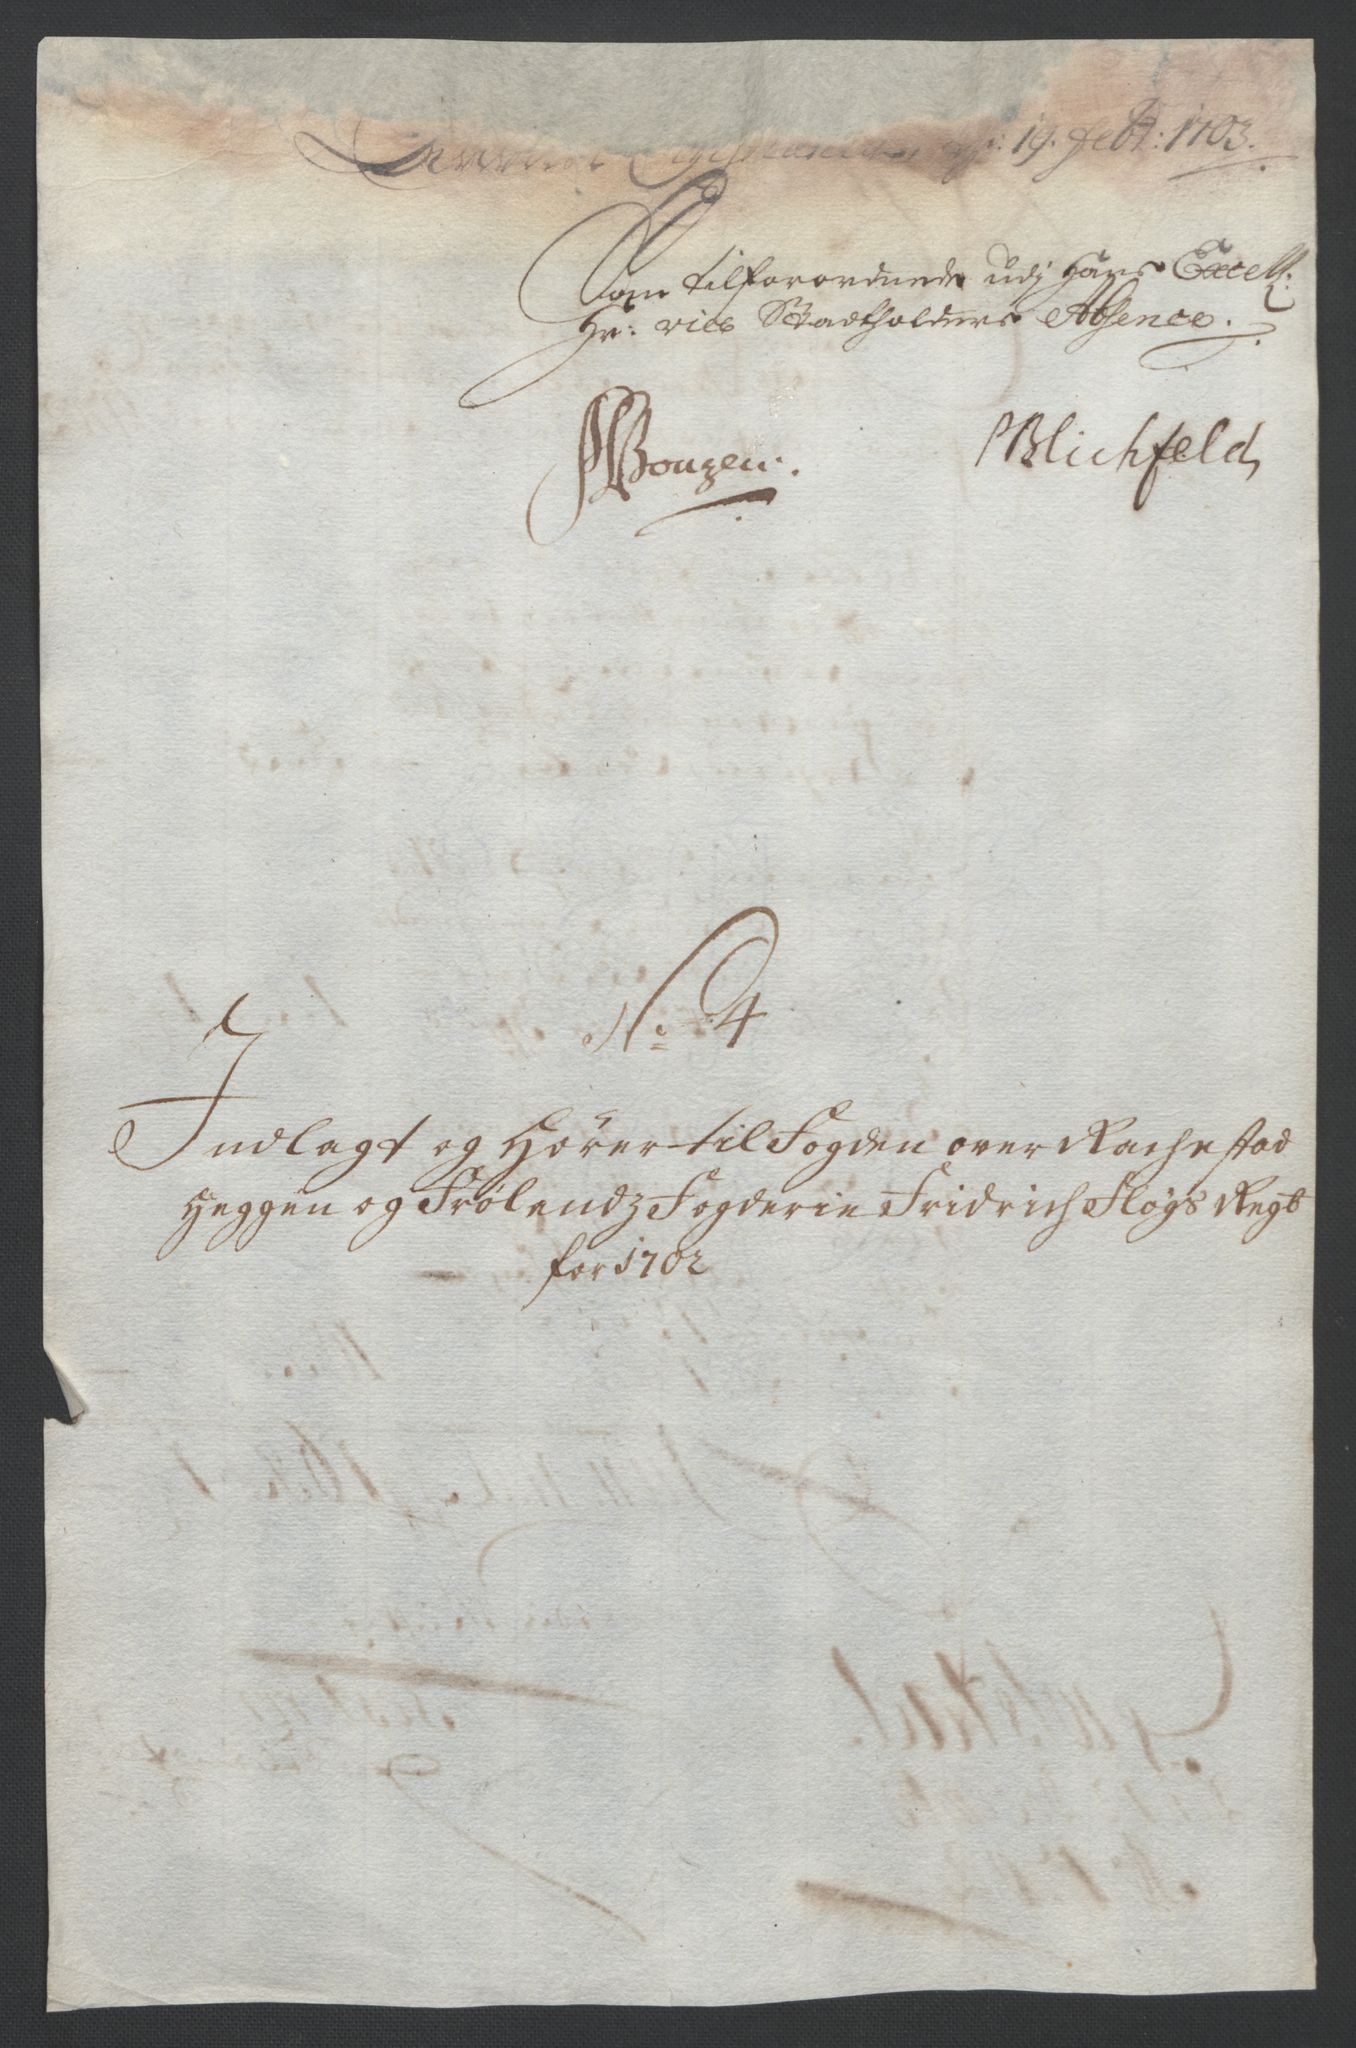 19. febr: 1703.
Som tilforordnede udj Hans Excell:
Hr: vice Stadtholders Absence.
Bouzen.
PBlichfeld
No. 4
Indlagt og Hörer til Fogden over Rachestad
Heggen og Frölendz Fogderie Fridrich Fløgs Regb
for 1702